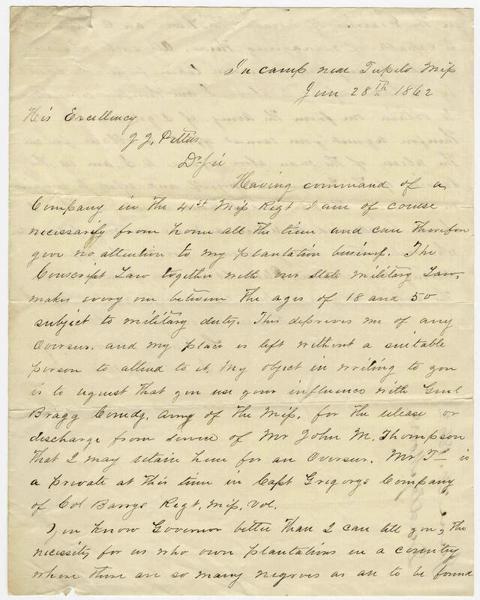 In camp near Tupelo Mip
Jun 28th 1862
His Excellency
J. J. Pettus
Dr Sir
Having command of a
Company in the 41st Mip Regt I am of course
necessarily from home all the time and can therefore
give no attention to my plantation business. The
Conscript Law together with our State Military Law,
makes every one between the ages of 18 and 50
subject to military duty. This deprives me of any
Overseer. and my place is left without a suitable
person to attend to it. My object in writing to you
is to request that you use your influence with Genl
Bragg Comdg. Army of the Mip. for the release or
discharge from service of Mr John M. Thompson
that I may retain him for an Overseer. Mr T. is
a private at this time in Capt Gregorys Company
of Col Barrys Regt. Mip. Vol.
You know Governor better than I can tell you, the
necessity for us who own plantations in a country
where there are so many negroes as are to be found